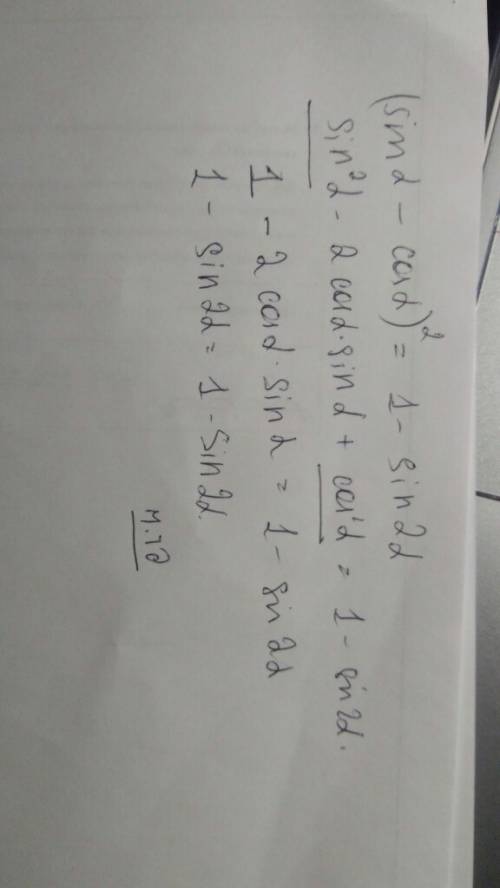 (sin α - cos α)² = 1 - sin 2α
sin²α - 2 cos α · sin α + cos²α = 1 - sin 2α.
1 - 2 cos α · sin α = 1 - sin 2α
1 - sin 2α = 1 - sin 2α.